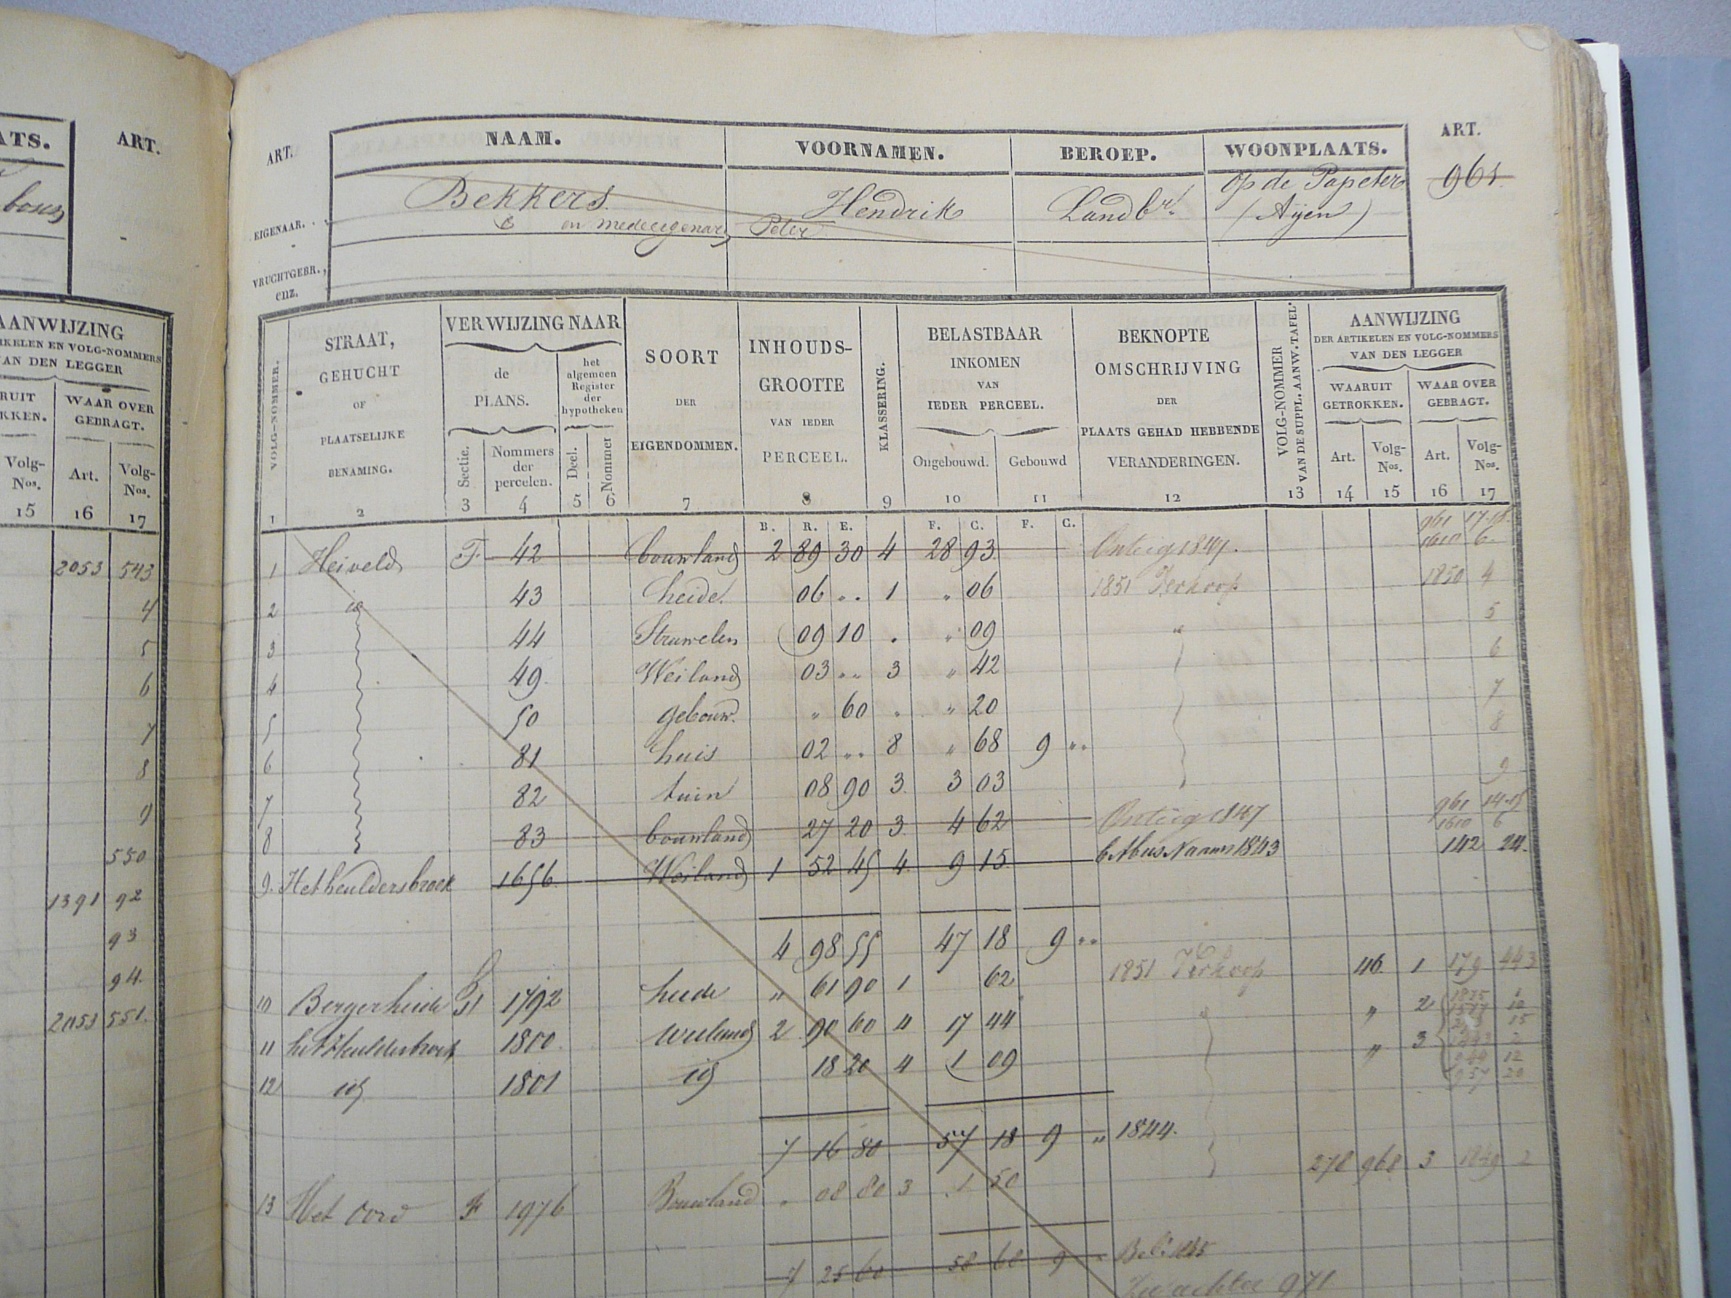 ATS.
ART.
AANWIJZING
VAN DEN LEGGER
WAAR OVER
GEBRAGT.
Volg-
Nos.
Art.
Volg-
Nos.
15 16 17
2053 543
4
5
6
7
8
9
550
1391 92
93
94.
2053 551.
ART.
NAAM.
VOORNAMEN.
BEROEP.
WOONPLAATS.
ART.
EIGENAAR.
Bekkers
Hendrik
Landbr.
op de Papeter
961
en medeeigenar
Peter
(Aijen)
VRUCHTGEBR.,
enz.
VOLG-NOMMER.
STRAAT,
GEHUCHT
OF
PLAATSELIJKE
BENAMING.
VERWIJZING NAAR
de
PLANS.
het
algemeen
Register
der
hypotheken
Sectie.
Nommers
der
percelen.
Deel.
Nommer
SOORT
DER
EIGENDOMMEN.
INHOUDS-
GROOTTE
VAN IEDER
PERCEEL.
KLASSERING.
BELASTBAAR
INKOMEN
VAN
IEDER PERCEEL.
Ongebouwd.
Gebouwd
BEKNOPTE
OMSCHRIJVING
DER
PLAATS GEHAD HEBBENDE
VERANDERINGEN.
VOLG-NOMMER
VAN DE SUPPL. AANW. TAFEL.
AANWIJZING
DER ARTIKELEN EN VOLG-NOMMERS
VAN DEN LEGGER
WAARUIT
GETROKKEN.
WAAR OVER
GEBRAGT.
Art.
Volg-
Nos.
Art.
Volg-
Nos.
1 2 3 4 5 6 7 8 9 10 11 12 13 14 15 16 17
B. R. E. F. C. F. C.
1 Heiveld F 42 bouwland 2 89 30 4 28 93 1847.
1610 6
2 id 43 heide. 06 " 1 " 06 1851 Verkoop 1850 4
3 44 Struwelen 09 10 . " 09 " 5
4 49 Weiland 03 " 3 " 42 6
5 50 gebouw. " 60 " " 20 7
6 81 huis 02 " 8 " 68 9 " 8
7 82 tuin 08 90 3 3 03 9
8 83 bouwland 27 20 3 4 62 1847 961
1610 6
9. Het heuldersbroek 1656 Weiland 1 52 45 4 9 15 1843 142 24.
4 98 55 47 18 9 "
10 Bergerheide G 1792 heide " 61 90 1 62 1851 Verkoop 46 1 179 443
11 het heuldersbroek 1800 weiland 2 90 60 4 17 44 " " 2
12 id 1801 id 18 20 4 1 09 " 3
7 16 80 57 18 9 " 1844.
13 Het Oord F 1976 Bouwland " 08 80 3 1 50 278 968 3 1849 2
7 25 60 58 68 9 "
971